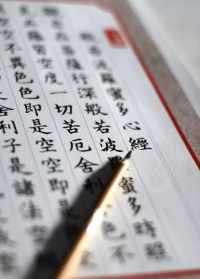 波羅蜜多心經
菩薩行深般若波蜜多時照
皆空度一切苦厄舍不
空不異色色即是空空即是
舍利子是諸法空